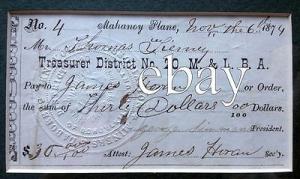 No. 4 Mahanoy Plane, Nov the 6th 1874
Mr Thomas Tierney
Treasurer District No. 10 M. & L. B. A.
ebay
Pay to James Horan or Order,
the sum of Thirty Dollars 00/100 Dollars.
George President.
$30 00/100 Attest: James Horan Sec'y.